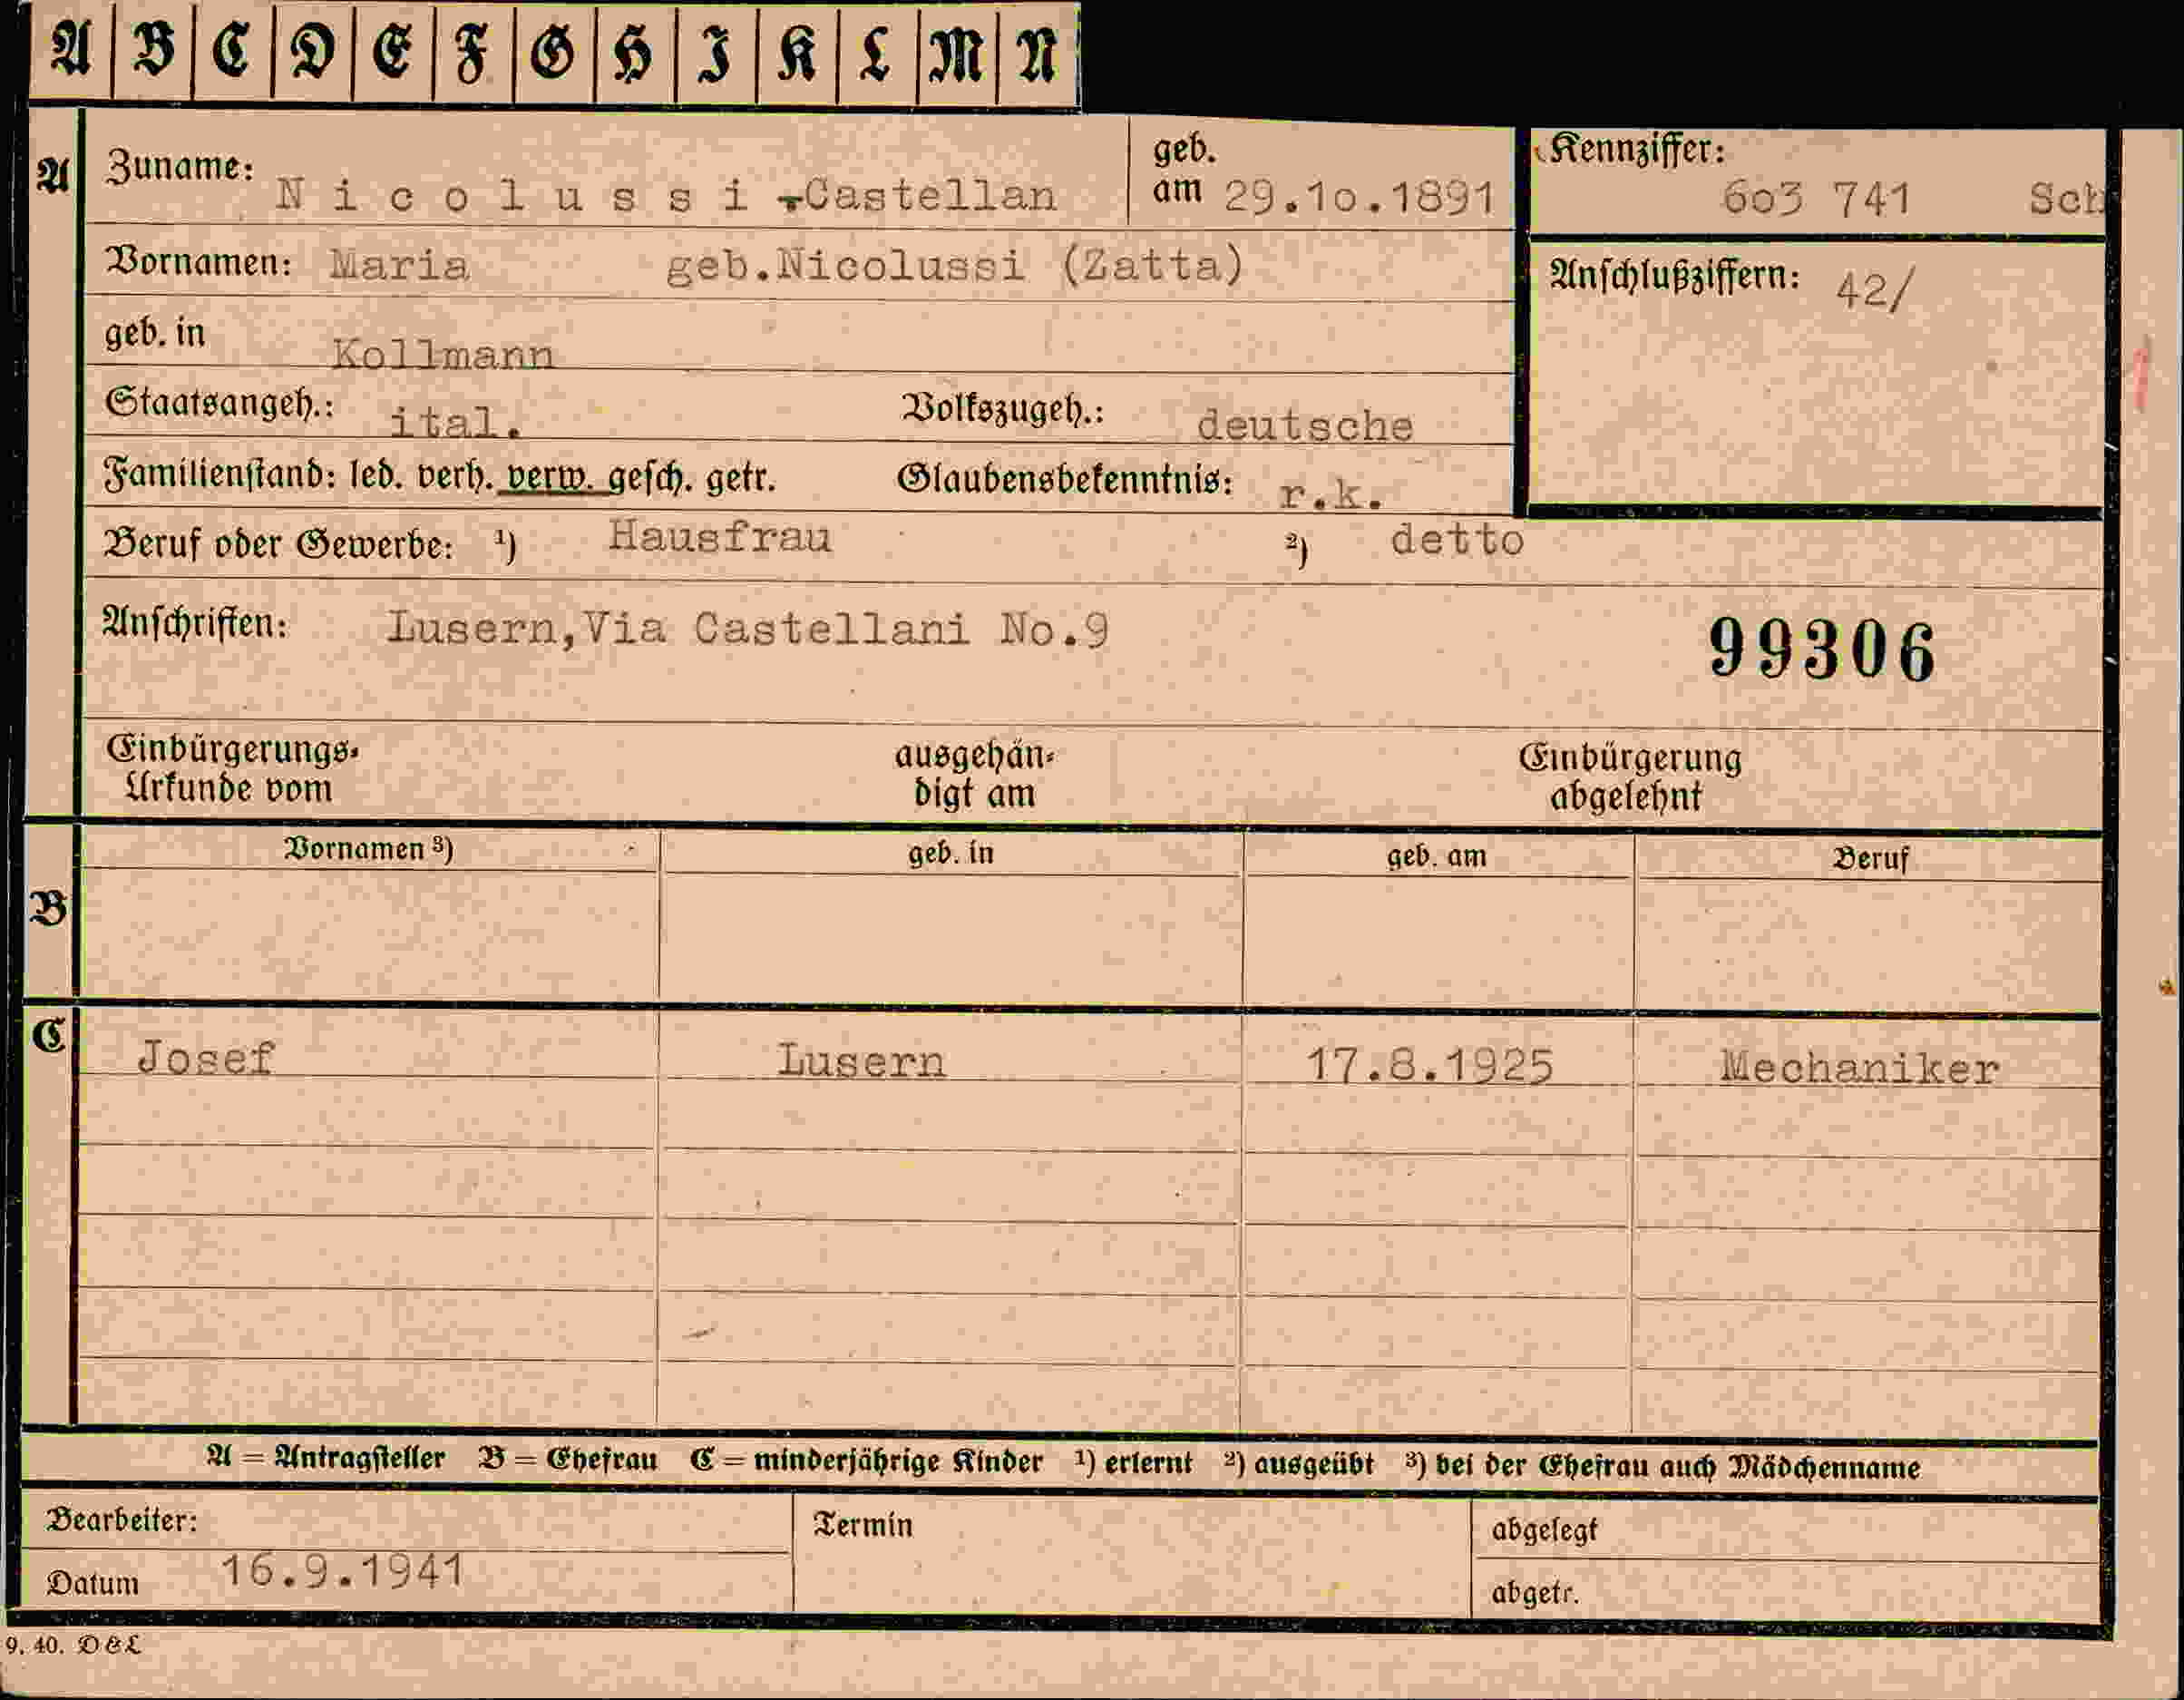 A B C D E F G H I K L M N
A Zuname: Nicolussi-Castellan geb. am 29.10.1891 Kennziffer: 603 741 Sch
Vornamen: Maria geb.Nicolussi (Zatta) Anschlußziffern: 42/
geb. in Kollmann
Staatsangeh.: ital. Volkszugeh.: deutsche
Familienstand: led. verh. verw. gesch. getr. Glaubensbekenntnis: r.k.
Beruf oder Gewerbe: ¹) Hausfrau ²) detto
Anschriften: Lusern,Via Castellani No.9 99306
Einbürgerungs- ausgehän- Einbürgerung
Urkunde vom digt am abgelehnt
Vornamen ³) geb. in geb. am Beruf
B
C Josef Lusern 17.8.1925 Mechaniker
A = Antragsteller B = Ehefrau C = minderjährige Kinder ¹) erlernt ²) ausgeübt ³) bei der Ehefrau auch Mädchenname
Bearbeiter: Termin abgelegt
Datum 16.9.1941 abgetr.
9. 40. D&L